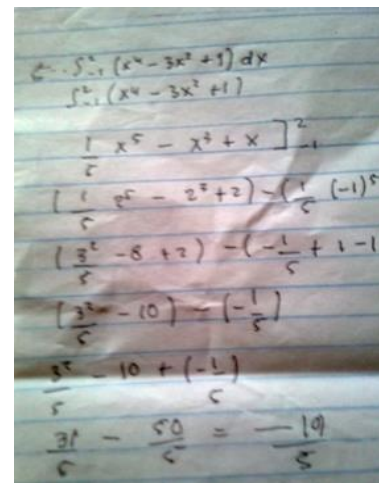 ∫²₋₁ (x⁴ - 3x² + 1) dx
∫²₋₁ (x⁴ - 3x² + 1)
1/5 x⁵ - x³ + x ]²₋₁
(1/5 2⁵ - 2³ + 2) - (1/5 (-1)⁵
(32/5 - 8 + 2) - (-1/5 + 1 - 1
(32/5 - 10) - (-1/5)
32/5 - 10 + (-1/5)
31/5 - 50/5 = -19/5